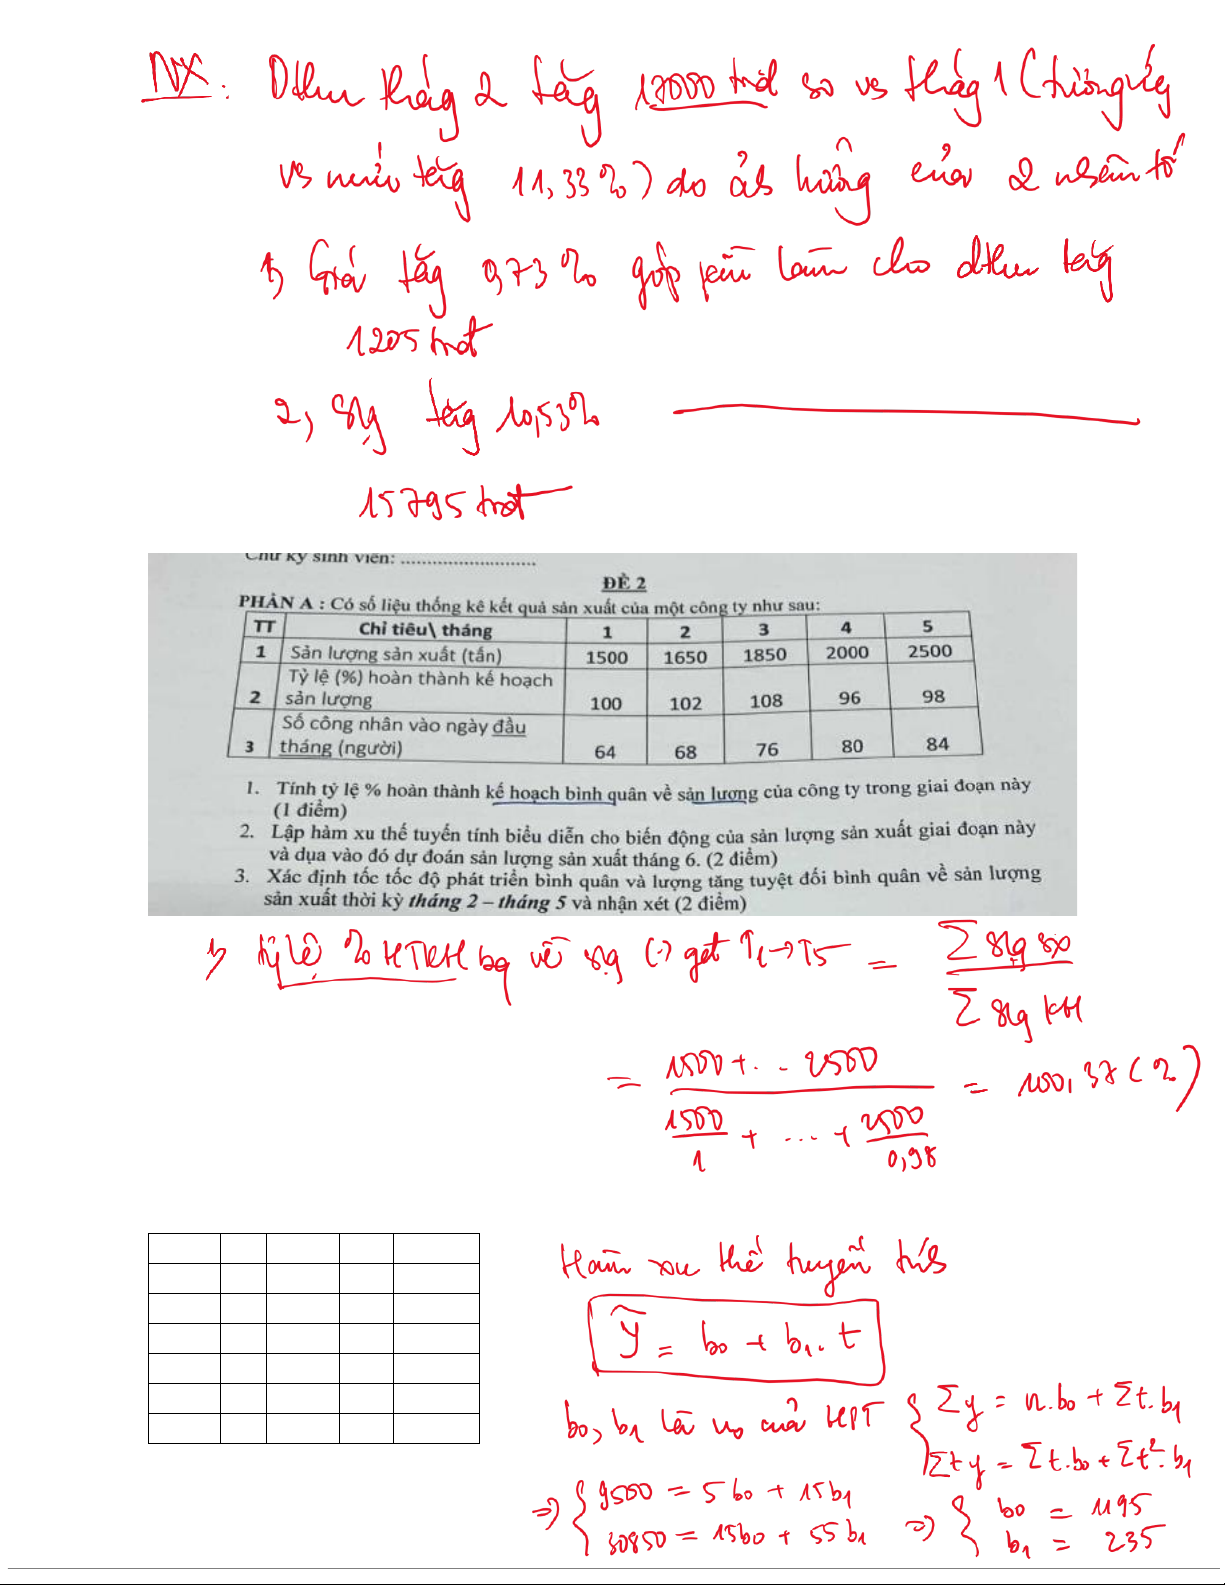 NX: Dthu thág 2 tăg 17000 trđ so vs thág 1 (tương ứg
vs mức tăg 11,33%) do ảh hưởng của 2 nhân tố
1) Giá tăg 0,73% góp làm cho dthu tăg
1205 trđ
2, Slg tăg 10,53%
15795 trđ
Chữ ký sinh viên: ............................
ĐỀ 2
PHẦN A : Có số liệu thống kê kết quả sản xuất của một công ty như sau:
TT Chỉ tiêu\ tháng 1 2 3 4 5
1 Sản lượng sản xuất (tấn) 1500 1650 1850 2000 2500
Tỷ lệ (%) hoàn thành kế hoạch
2 sản lượng 100 102 108 96 98
Số công nhân vào ngày đầu
3 tháng (người) 64 68 76 80 84
1. Tính tỷ lệ % hoàn thành kế hoạch bình quân về sản lượng của công ty trong giai đoạn này
(1 điểm)
2. Lập hàm xu thế tuyến tính biểu diễn cho biến động của sản lượng sản xuất giai đoạn này
và dụa vào đó dự đoán sản lượng sản xuất tháng 6. (2 điểm)
3. Xác định tốc tốc độ phát triển bình quân và lượng tăng tuyệt đối bình quân về sản lượng
sản xuất thời kỳ tháng 2 – tháng 5 và nhận xét (2 điểm)
1) tỷ lệ % HTKH bq về slg (-) gđ T1→T5 = Σ slg sx
Σ slg KH
= 1500+...2500 = 100,37 (%)
1500/1 + ... + 2500/0,98
Hàm xu thế tuyến tíh
ŷ = b0 + b1.t
b0, b1 là no của HPT { Σy = n.b0 + Σt.b1
Σty = Σt.b0 + Σt².b1
=> { 9500 = 5b0 + 15b1 => { b0 = 1195
30850 = 15b0 + 55b1 b1 = 235